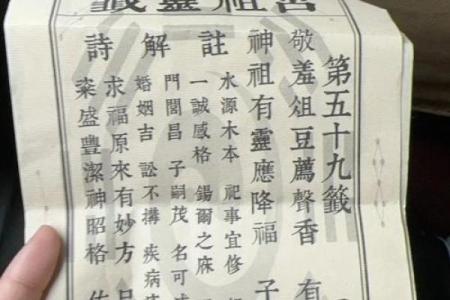 呂祖靈籤
第五十九籤
敬羞俎豆薦聲香 有
神祖有靈應降福 子
註解詩
水源木本 祀事宜修
一誠感格 錫爾之庥
門閭昌 子嗣茂 名可
婚姻吉 訟不搆 疾病
求福原來有妙方
粢盛豐潔神昭格